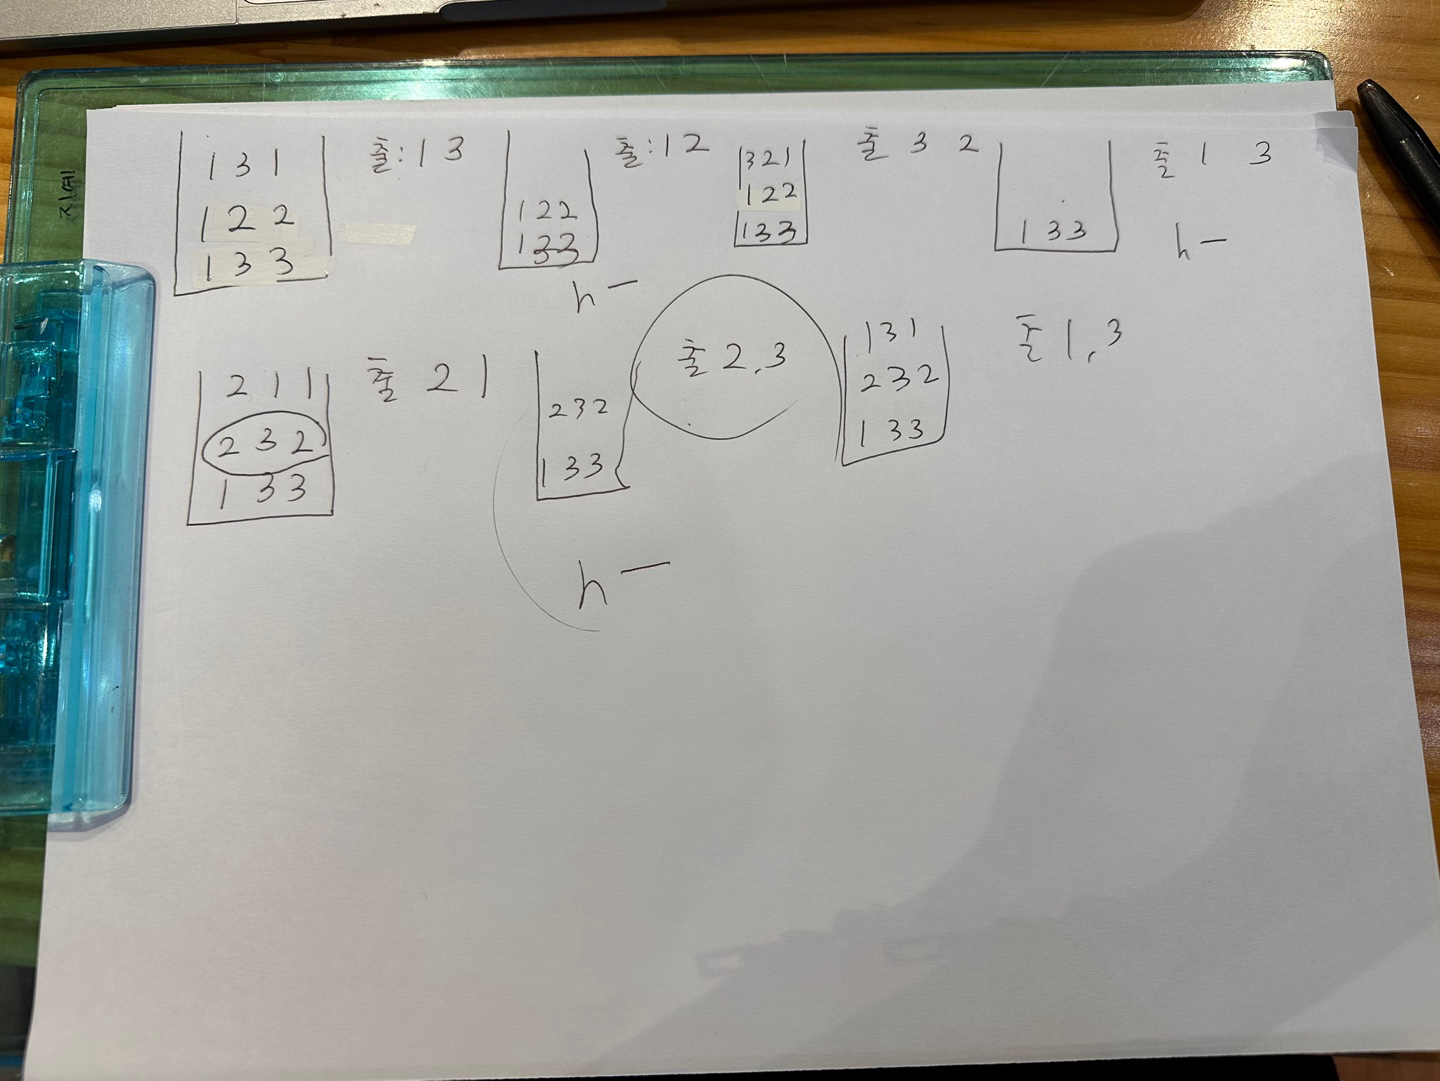 지예
1 3 1
1 2 2
1 3 3
출:1 3
1 2 2
1 3 3
h −
출:1 2
3 2 1
1 2 2
1 3 3
출 3 2
1 3 3
출 1 3
h −
2 1 1
2 3 2
1 3 3
출 2 1
2 3 2
1 3 3
h −
출 2.3
1 3 1
2 3 2
1 3 3
출 1.3